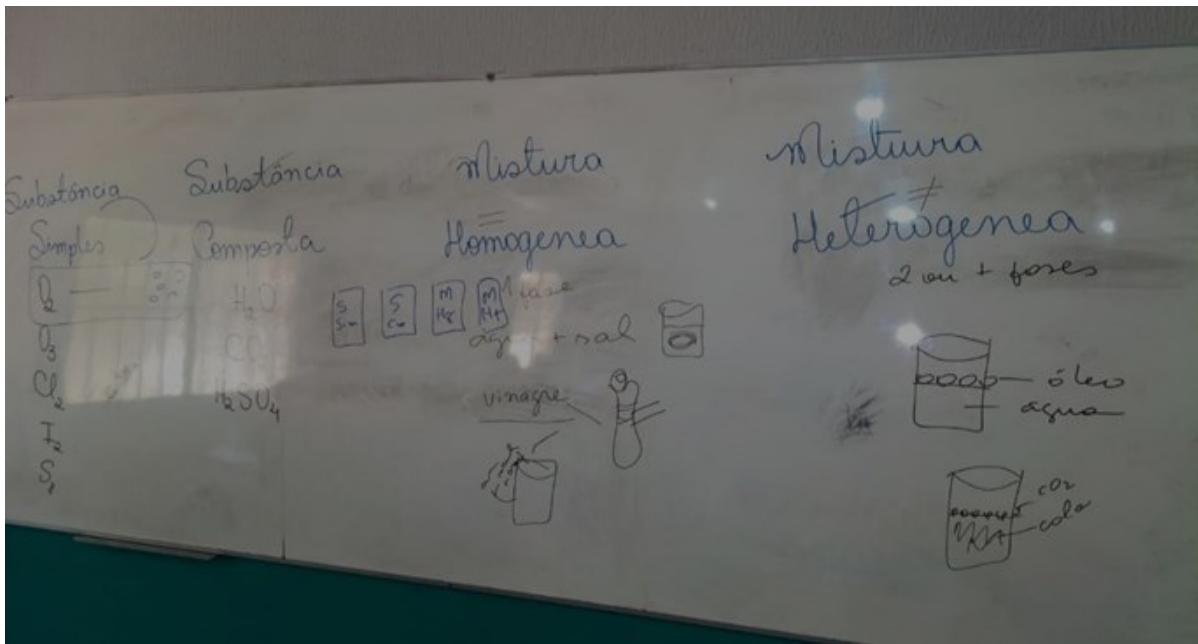 Substância
Simples
O₂
O₃
Cl₂
I₂
S₈
Substância
Composta
H₂O
CO₂
H₂SO₄
Mistura
=
Homogenea
1 fase
S
Sim
S
Com
M
Ho
M
Ht
água + sal
vinagre
Mistura
≠
Heterogenea
2 ou + fases
óleo
água
CO₂
cola